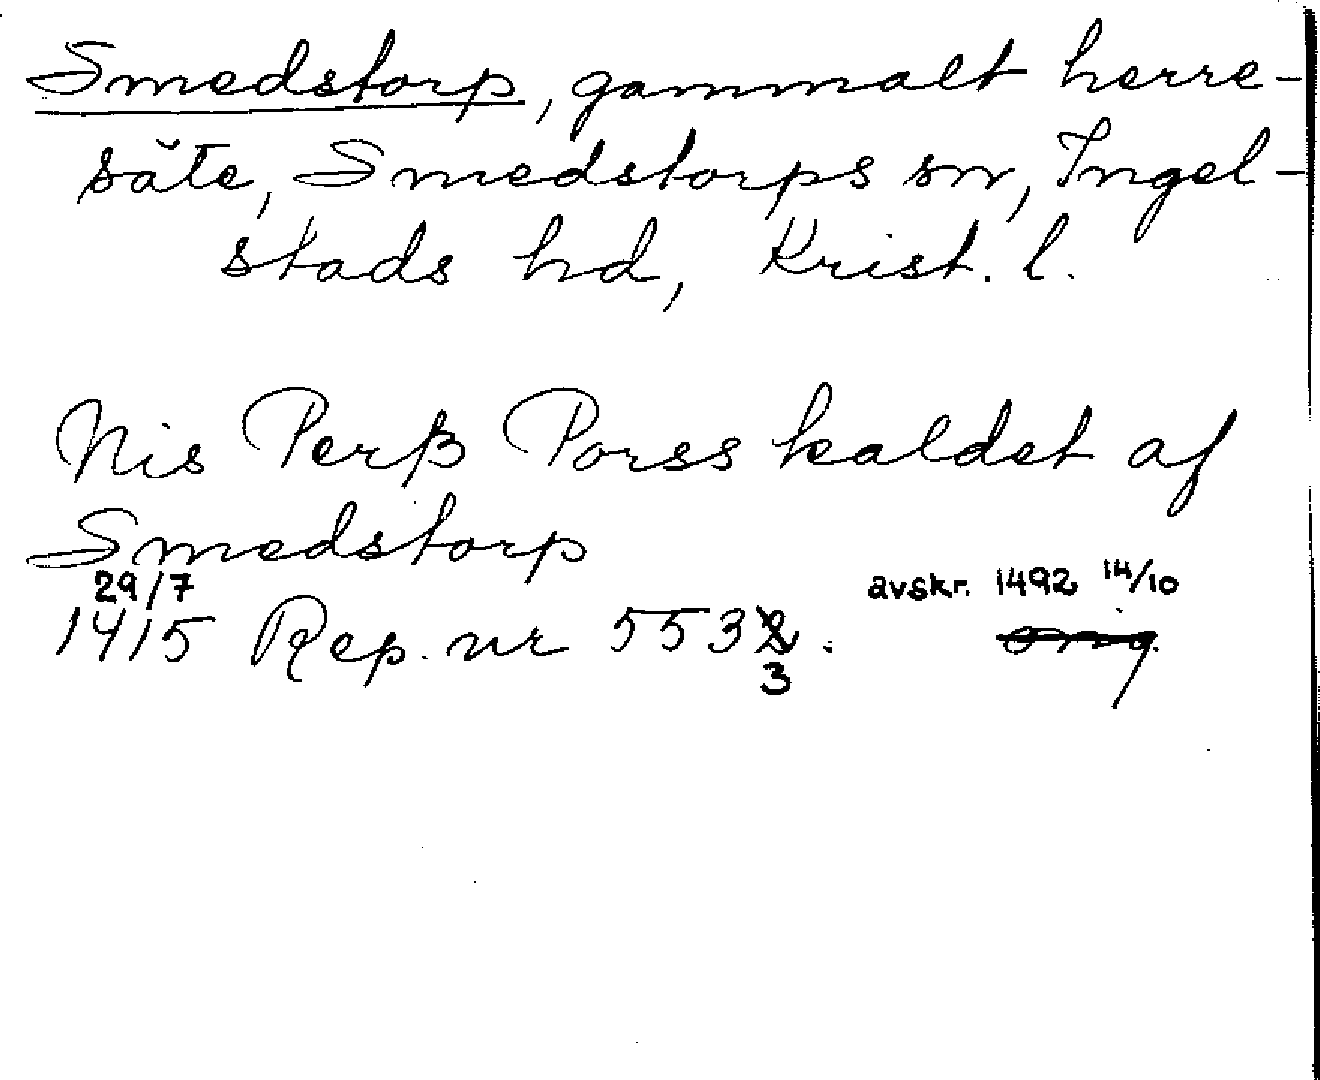 Smedstorp, gammalt herre-
säte, Smedstorps sn, Ingel-
stads hd, Krist. l.
Nis Perß Porss kaldet af
Smedstorp
29/7 avskr. 1492 14/10
1415 Rep. nr 5532. orig.
3